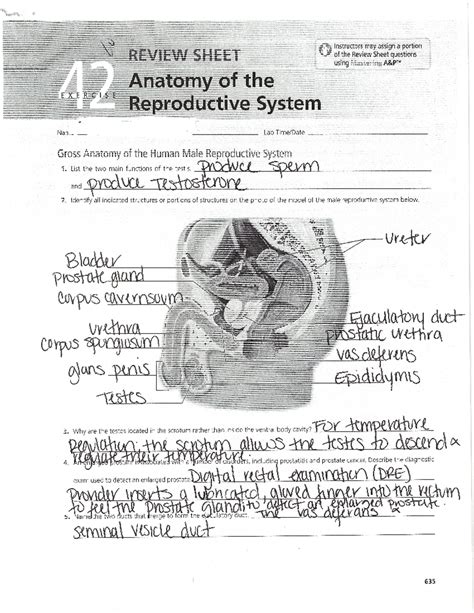 REVIEW SHEET
42
EXERCISE
Anatomy of the
Reproductive System
Instructors may assign a portion
of the Review Sheet questions
using Mastering A&P™
Lab Time/Date
Gross Anatomy of the Human Male Reproductive System
1. List the two main functions of the testis. produce sperm
and produce testosterone
2. Identify all indicated structures or portions of structures on the photo of the model of the male reproductive system below.
ureter
Bladder
Prostate gland
corpus cavernosum
urethra
corpus spongiosum
glans penis
Testes
Ejaculatory duct
prostatic urethra
vas deferens
Epididymis
3. Why are the testes located in the scrotum rather than inside the ventral body cavity? For temperature
Regulation: the scrotum allows the testes to descend &
regulate their temperature.
4. An enlarged prostate with a number of disorders, including prostatitis and prostate cancer. Describe the diagnostic
exam used to detect an enlarged prostate. Digital rectal examination (DRE)
Provider inserts a lubricated, gloved finger into the rectum
to feel the prostate gland to detect an enlarged prostate.
5. Name the two ducts that merge to form the ejaculatory duct. the vas deferans &
seminal vesicle duct
635